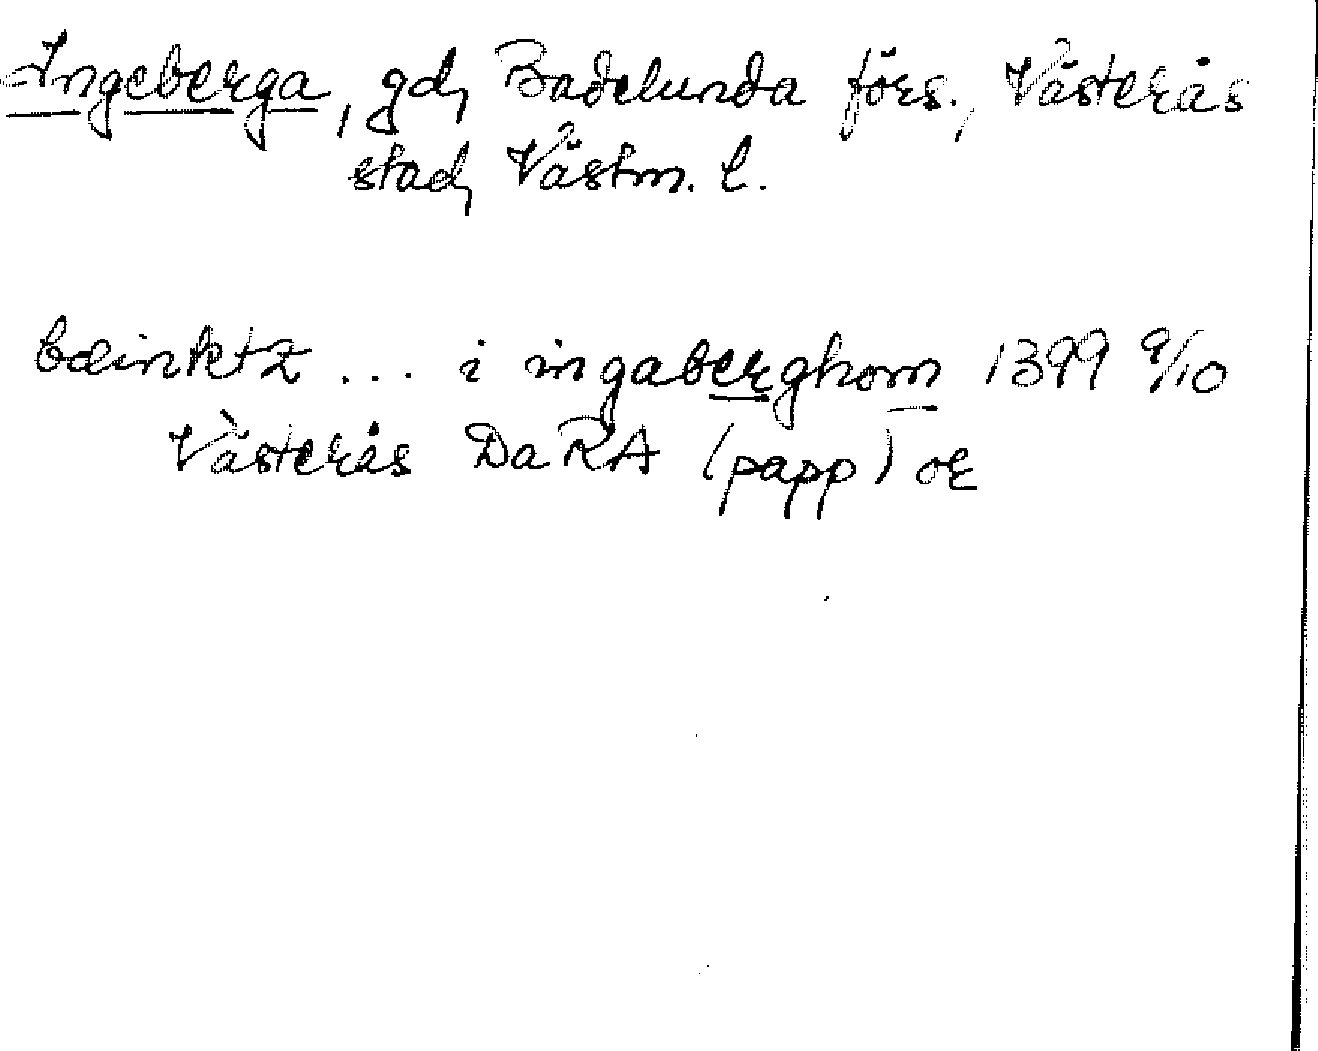 Ingeberga, gd, Badelunda förs., Västerås
stad, Västm. l.
bæinktz ... i ingaberghom 1399 9/10
Västerås DaRA (papp) or